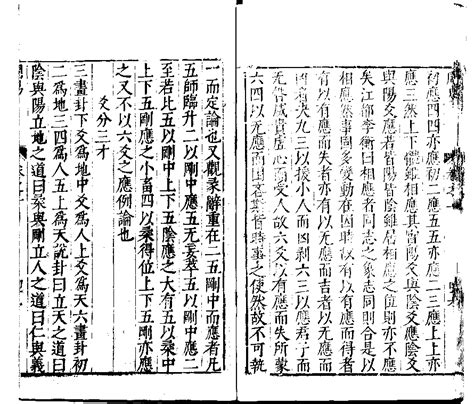 初應四四亦應初二應五五亦應二三應上上亦
應三然上下體雖相應其實陽爻與陰爻應陰爻
與陽爻應若皆陽皆陰雖居相應之位則亦不應
矣江都李衡曰相應者同志之象志同則合是以
相應然事固多變動在因時故有以有應而得者
有以有應而失者亦有以无應而吉者以无應而
凶者夬九三以援小人而凶剝六三以應君子而
无咎咸貴虛心而受人故六爻以有應而失所蒙
六四以无應而困吝斯皆時事之使然故不可執
一而定論也又觀彖辭重在二五剛中而應者凡
五師臨升二以剛中應五无妄萃五以剛中應二
至若比五以剛中上下五陰應之大有五以柔中
上下五剛應之小畜四以柔得位上下五剛亦應
之又不以六爻之應例論也
爻分三才
三畫卦下爻爲地中爻爲人上爻爲天六畫卦初
二爲地三四爲人五上爲天說卦曰立天之道曰
陰與陽立地之道曰柔與剛立人之道曰仁與義